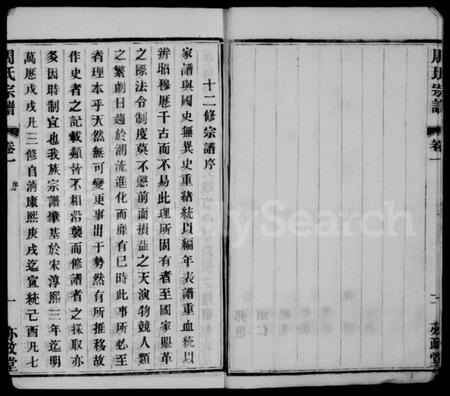 十二修宗譜序
家譜與國史無異史重緒統以編年表譜重血統以
辨昭穆歷千古而不易此理所固有者至國家鼎革
之際法令制度莫不懲前而損益之天演物競人類
之繁劇日趨於潮流進化而靡有已時此事所必至
者理本乎天然無可變更事出于勢然有所推移故
作史者之記載類皆不相沿襲而修譜者之採取亦
多因時制宜也我族宗譜肇基於宋淳熙三年迄明
萬歷戊戌凡三修自清康熙庚戌迄宣統己酉凡七
周氏宗譜
卷一
序
一
亦政堂
周氏宗譜
卷一
MySearch